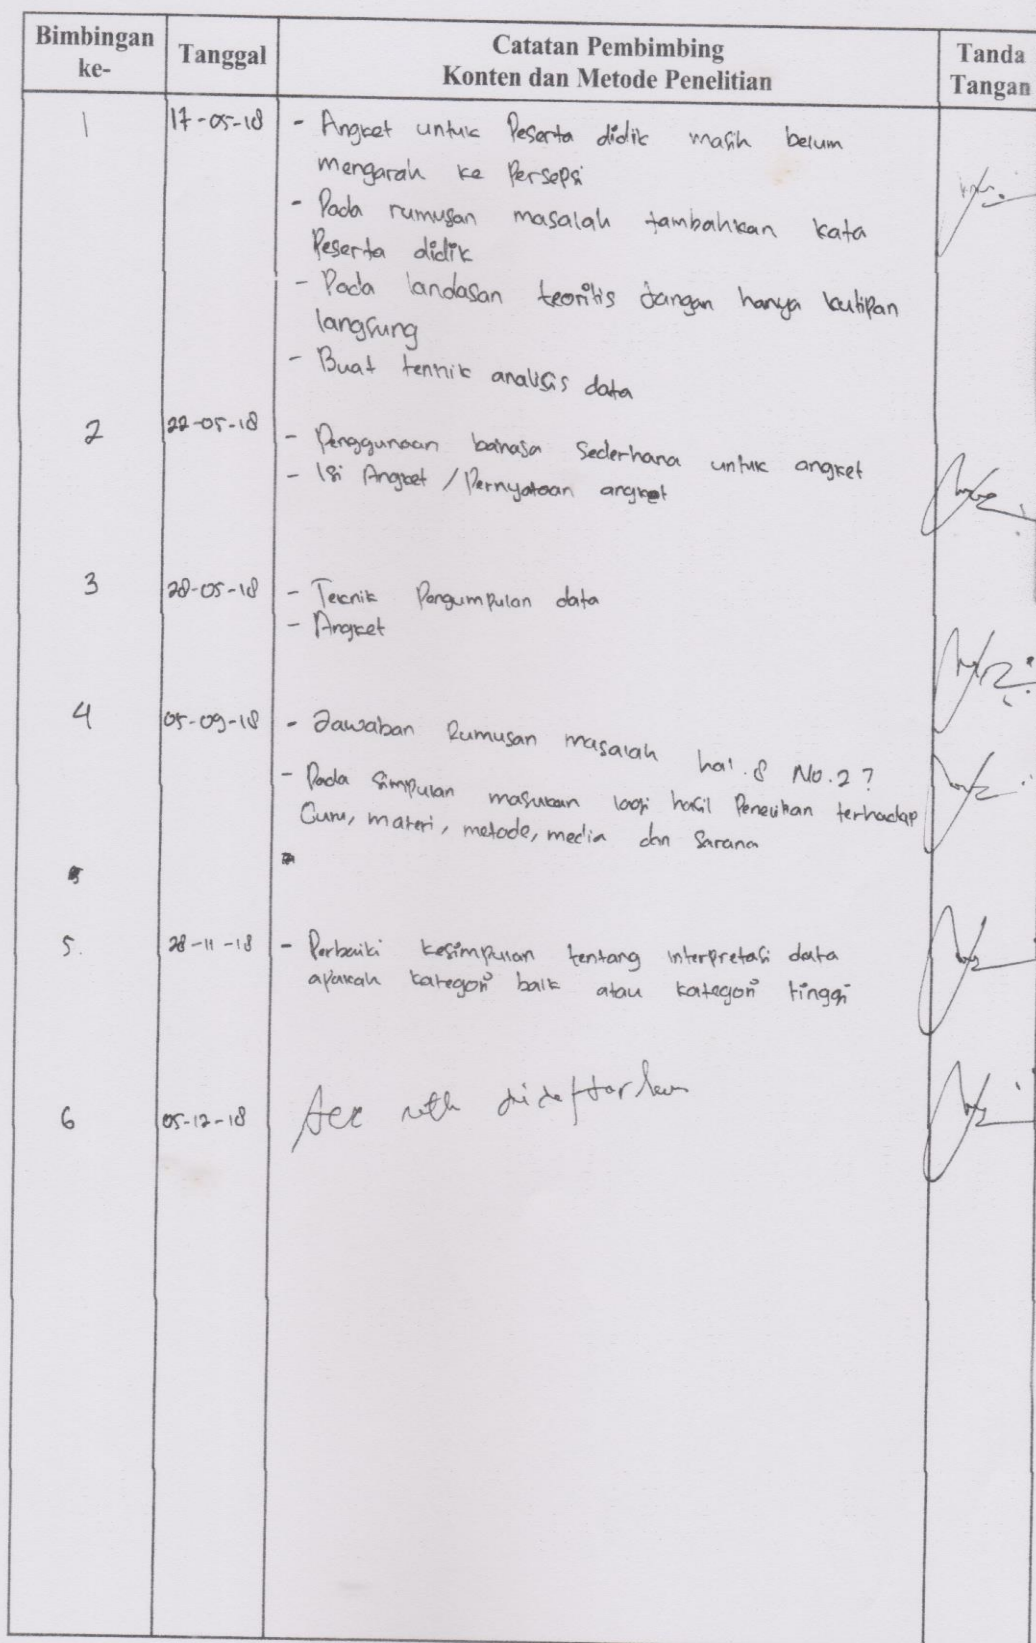 Bimbingan ke- Tanggal Catatan Pembimbing Konten dan Metode Penelitian Tanda Tangan
1 17-05-18 - Angket untuk Peserta didik masih belum
mengarah ke Persepsi
- Pada rumusan masalah tambahkan kata
Peserta didik
- Pada landasan teoritis Jangan hanya kutipan
langsung
- Buat teknik analisis data
2 22-05-18 - Penggunaan bahasa Sederhana untuk angket
- Isi Angket / Pernyataan angket
3 28-05-18 - Teknik Pengumpulan data
- Angket
4 05-09-18 - Jawaban Rumusan masalah hal. 8 No. 2 ?
- Pada Simpulan masukan lagi hasil Penelitian terhadap
Guru, materi, metode, media dan Sarana
5. 28-11-18 - Perbaiki kesimpulan tentang interpretasi data
apakah kategori baik atau kategori tinggi
6 05-12-18 Acc didaftarkan